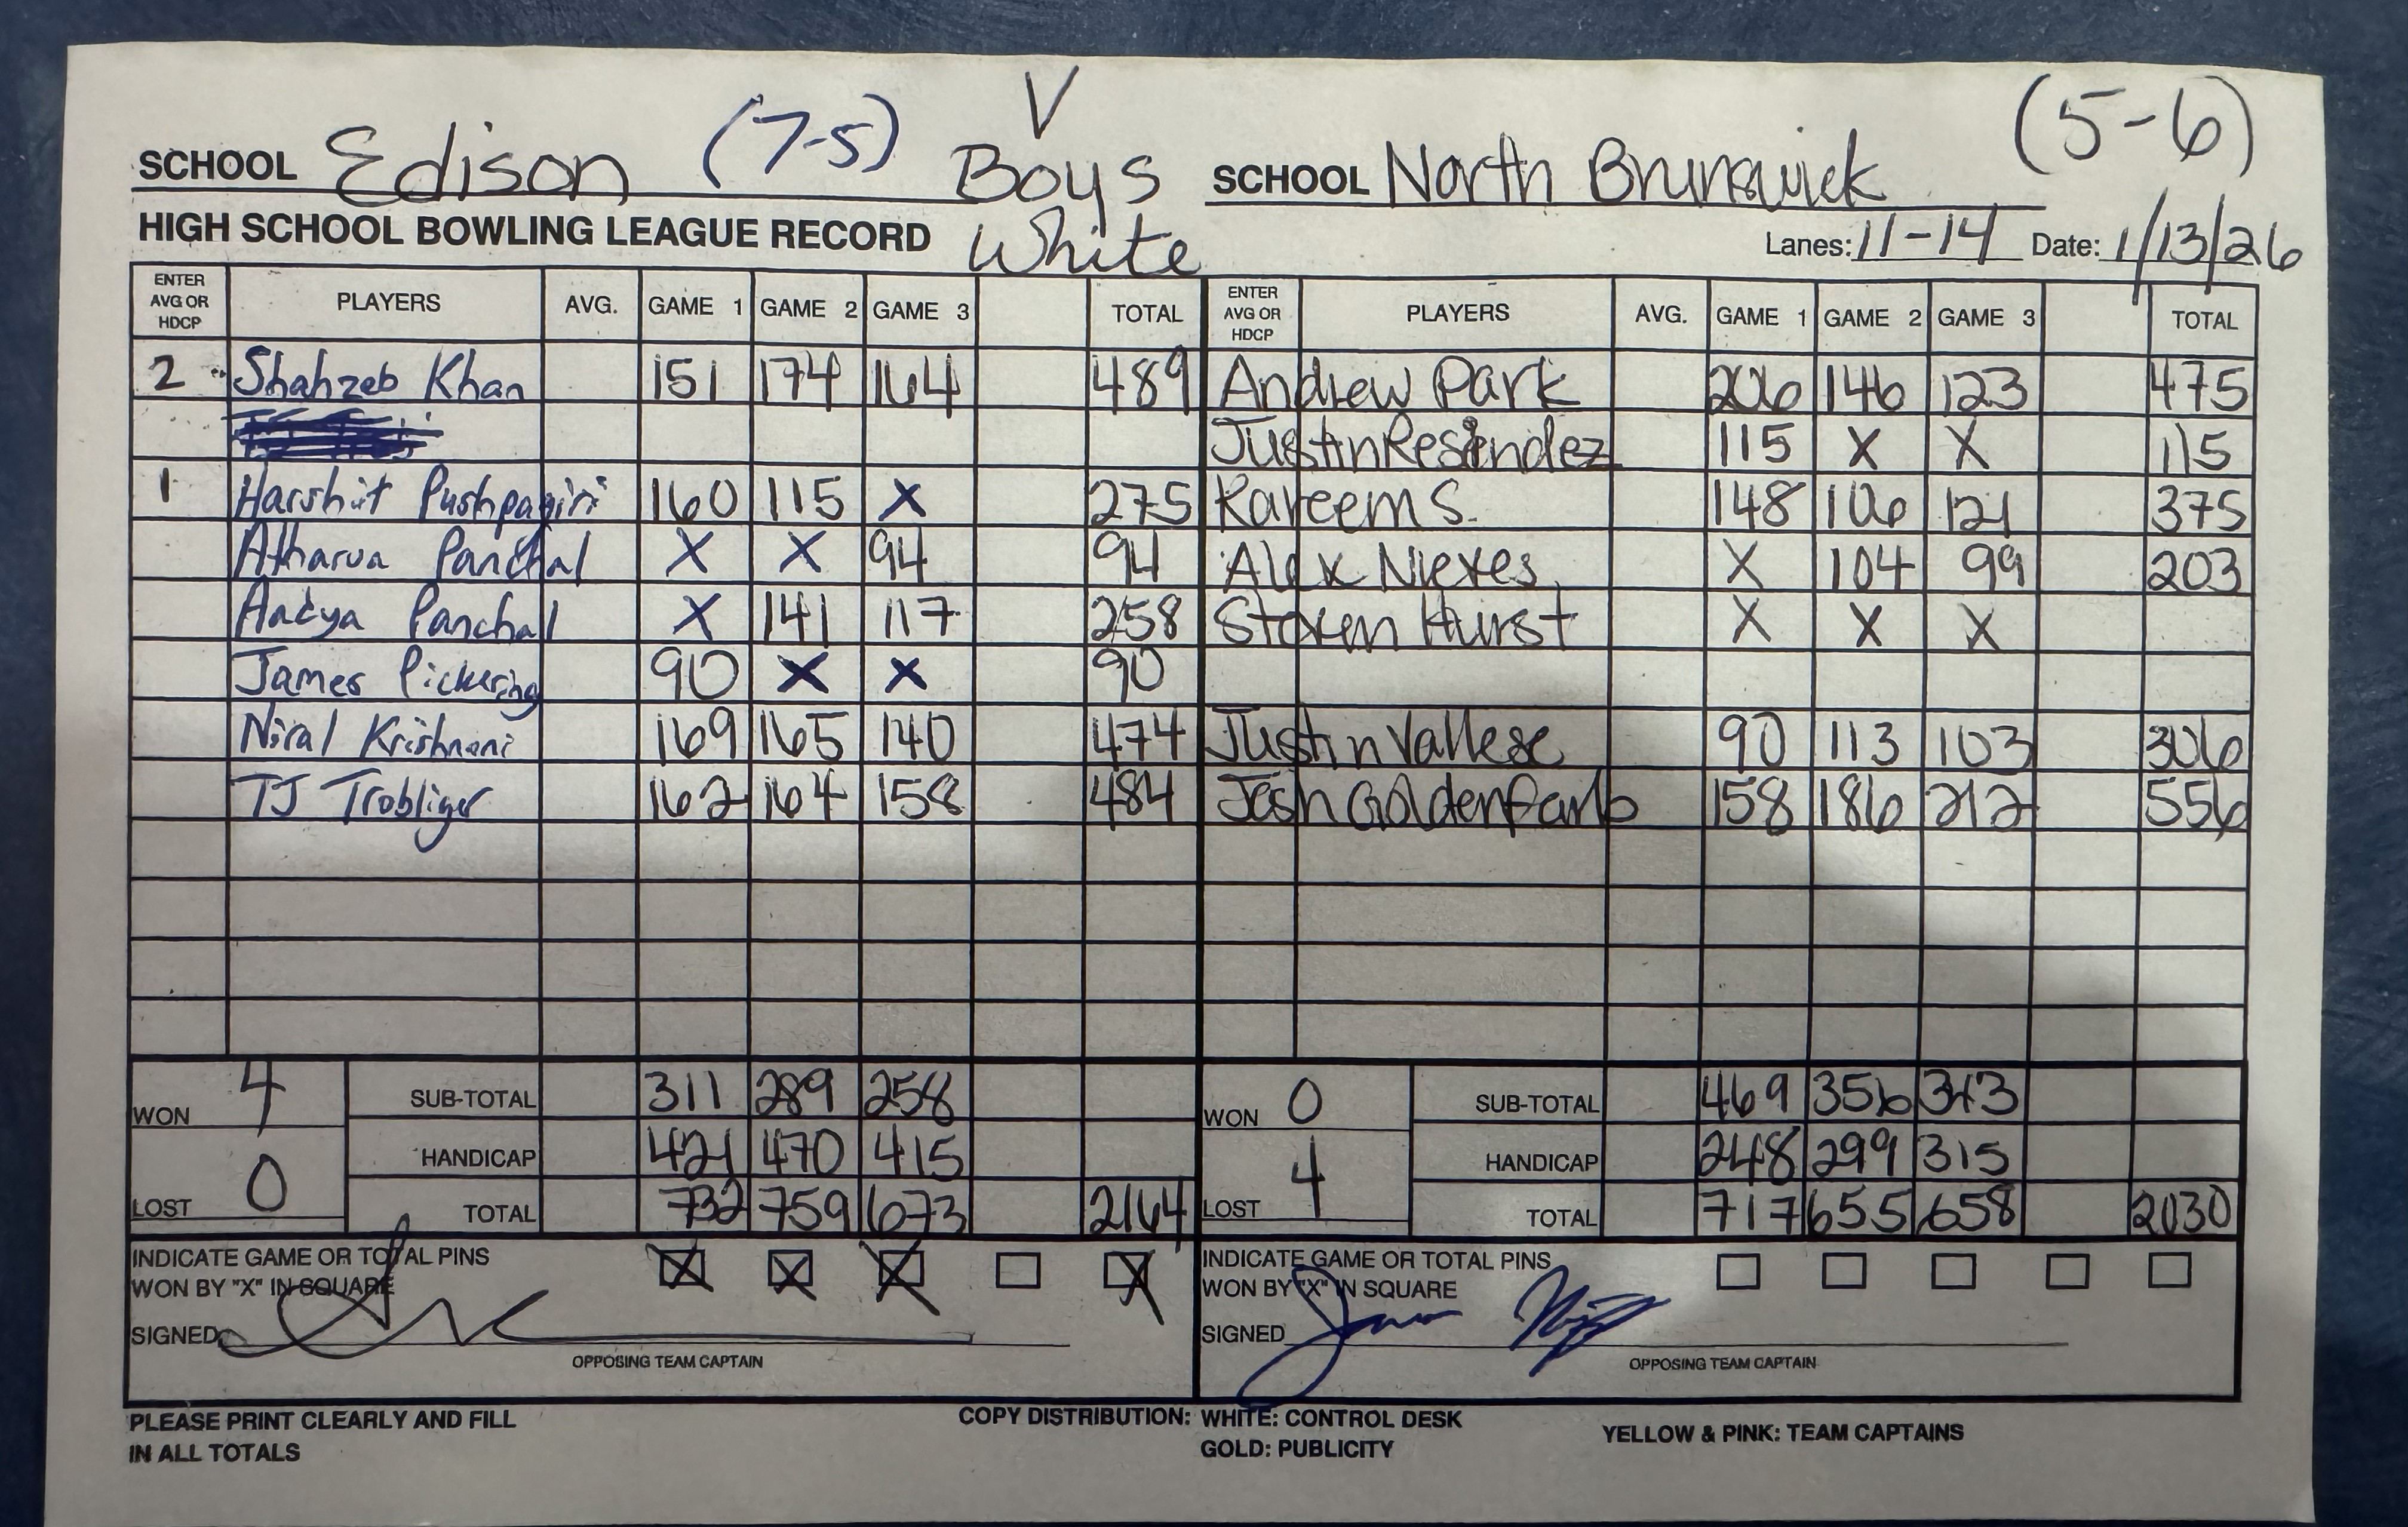 V
SCHOOL Edison (7-5) Boys SCHOOL North Brunswick (5-6)
HIGH SCHOOL BOWLING LEAGUE RECORD White Lanes: 11-14 Date: 1/13/26
ENTER AVG OR HDCP PLAYERS AVG. GAME 1 GAME 2 GAME 3 TOTAL ENTER AVG OR HDCP PLAYERS AVG. GAME 1 GAME 2 GAME 3 TOTAL
2 Shahzeb Khan 151 174 164 489 Andrew Park 206 146 123 475
Justin Resendez 115 X X 115
1 Harshit Pushpagiri 160 115 X 275 Kareem S. 148 106 121 375
Atharva Panchal X X 94 94 Alex Nieves X 104 99 203
Aadya Panchal X 141 117 258 Steven Hurst X X X
James Pickering 90 X X 90
Niral Krishnani 169 165 140 474 Justin Vallese 90 113 103 306
TJ Trobliger 162 164 158 484 Josh Goldenfarb 158 186 212 556
WON 4 SUB-TOTAL 311 289 258 WON 0 SUB-TOTAL 469 356 343
HANDICAP 421 470 415 HANDICAP 248 299 315
LOST 0 TOTAL 732 759 673 2164 LOST 4 TOTAL 717 655 658 2030
INDICATE GAME OR TOTAL PINS X X X X INDICATE GAME OR TOTAL PINS
WON BY "X" IN SQUARE WON BY "X" IN SQUARE
SIGNED SIGNED
OPPOSING TEAM CAPTAIN OPPOSING TEAM CAPTAIN
PLEASE PRINT CLEARLY AND FILL COPY DISTRIBUTION: WHITE: CONTROL DESK YELLOW & PINK: TEAM CAPTAINS
IN ALL TOTALS GOLD: PUBLICITY